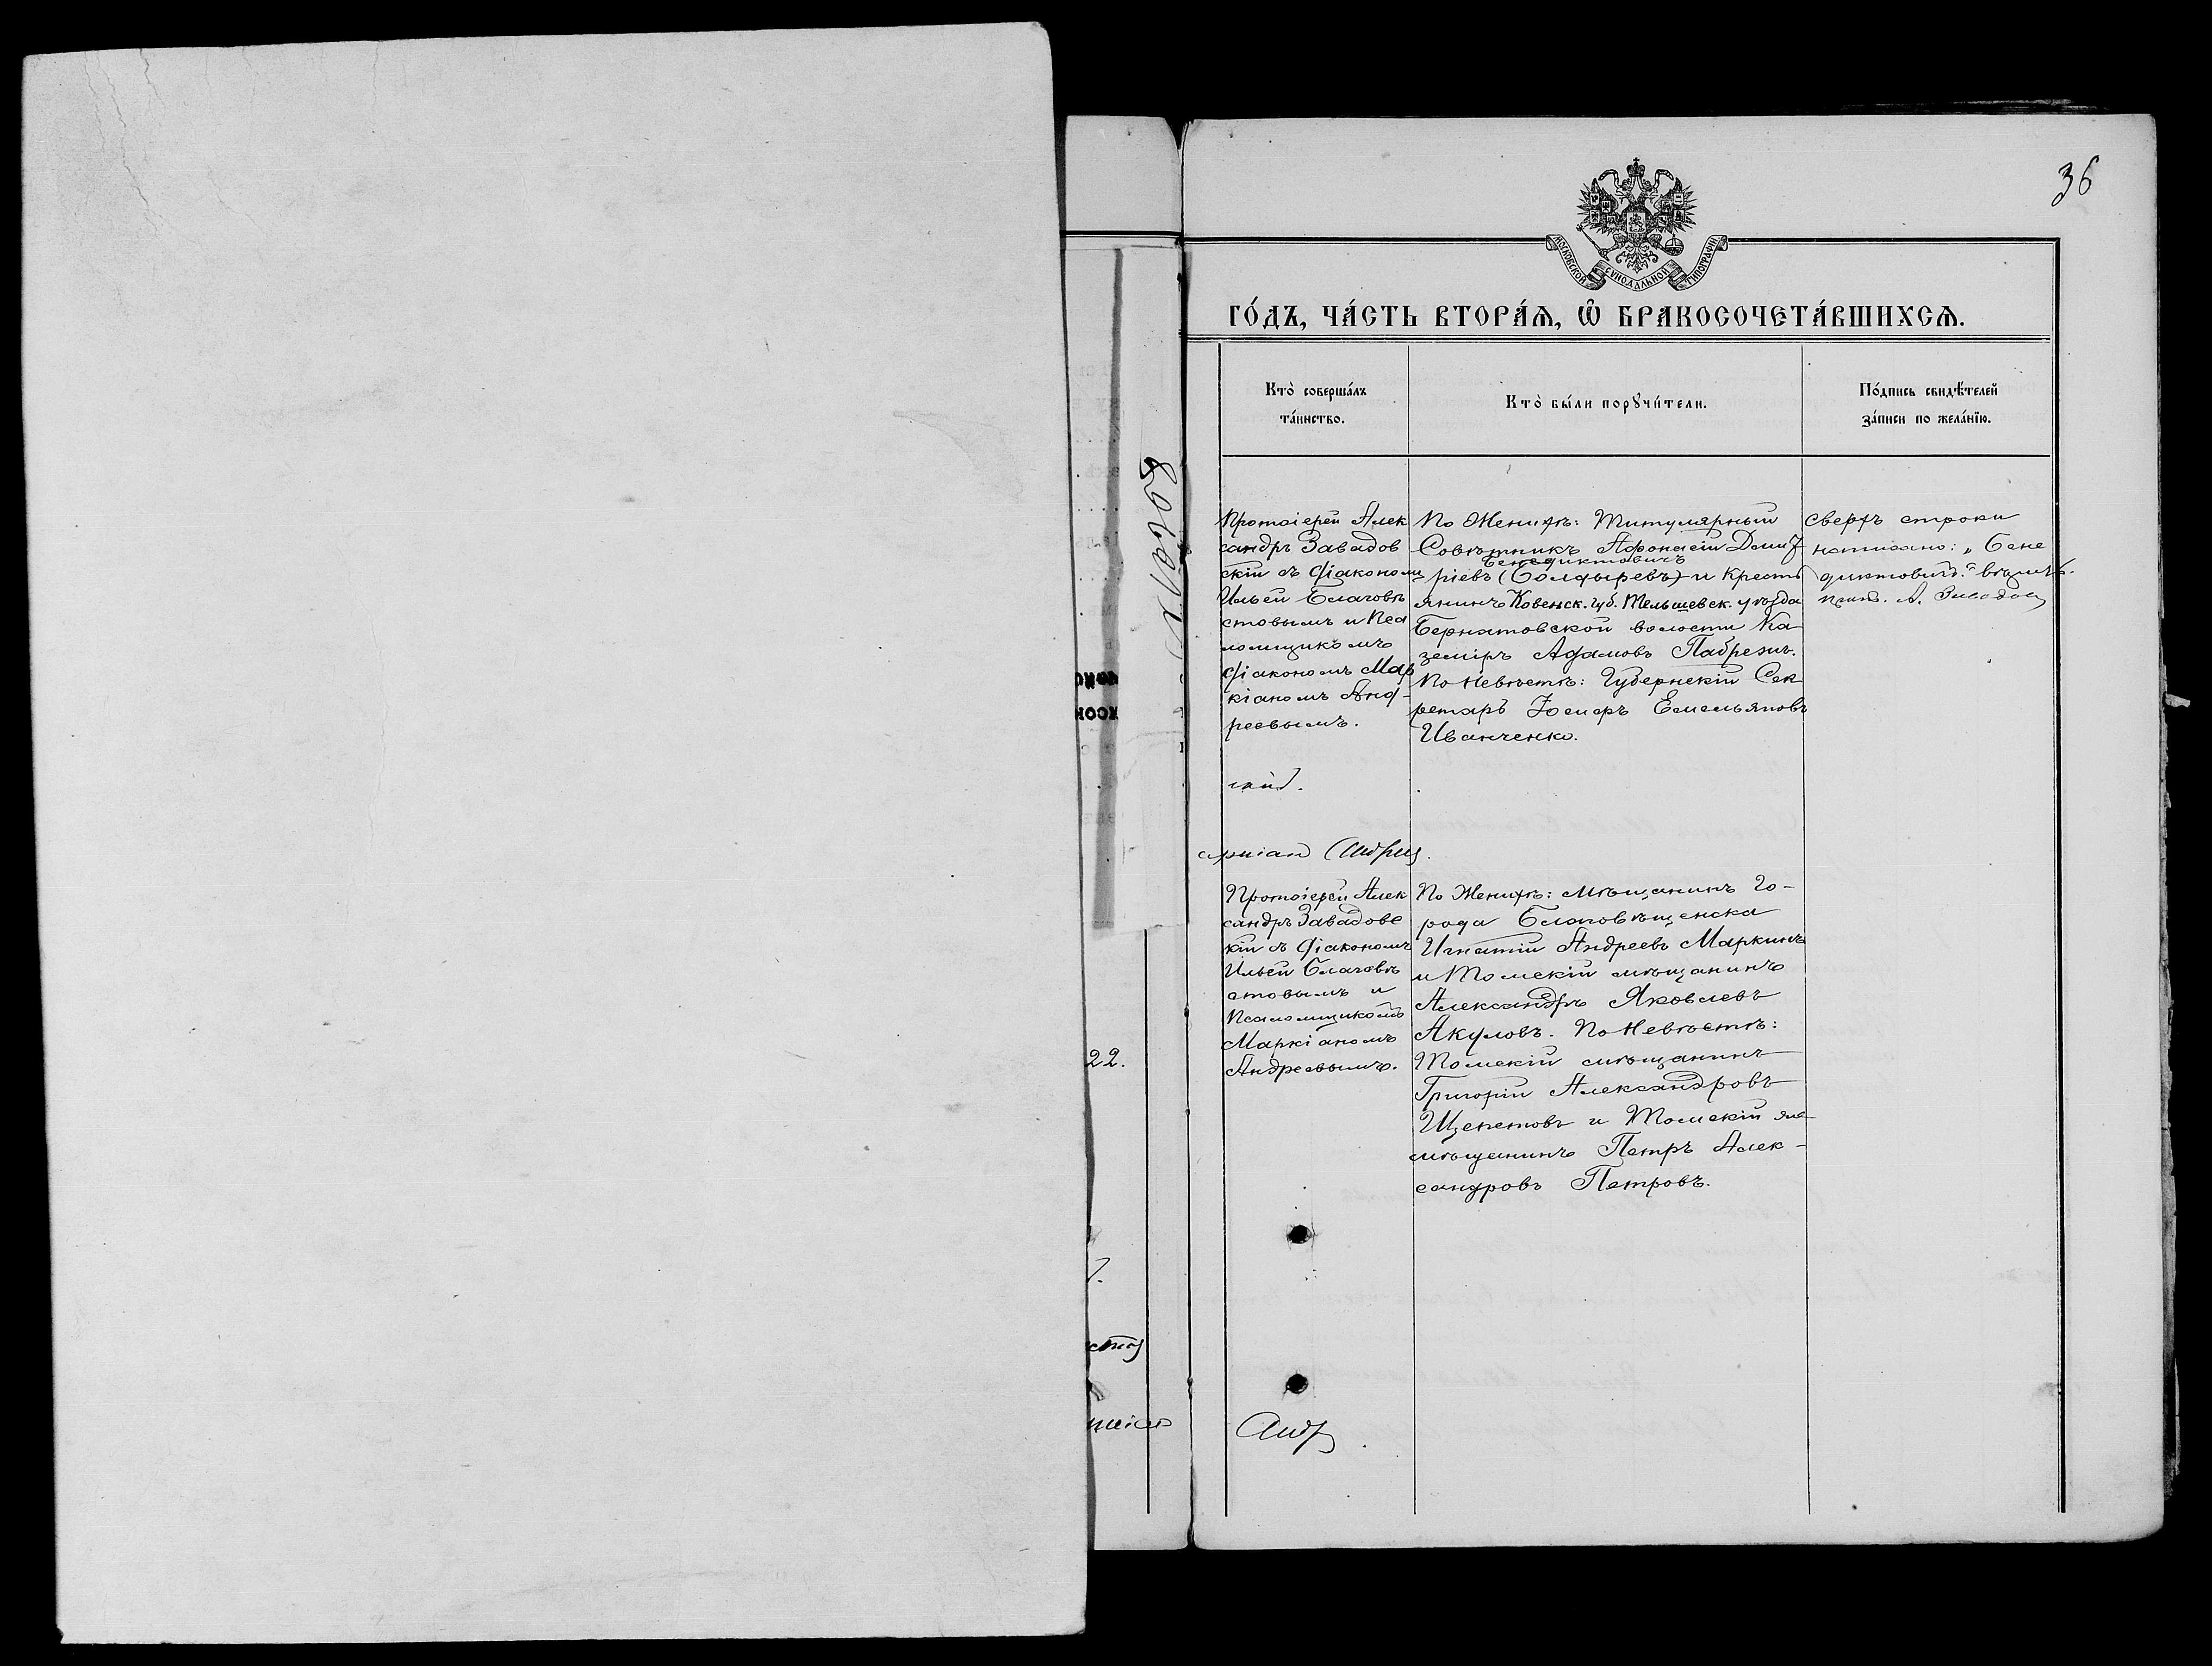 36
МОСКОВСКОЙ СѴНОДАЛЬНОЙ ТИПОГРАФІИ
ГО́ДЪ, ЧА́СТЬ ВТОРА́Ѧ, Ѡ҆ БРАКОСОЧЕТА́ВШИХСѦ.
Кто̀ соверша́лъ
та́инство.
Кто̀ бы́ли порꙋчи́тели.
По́дпись свидѣ́телей
за́писи по жела́нїю.
Протоіерей Алек
сандръ Завадов
скій съ діакономъ
Ильей Благовѣ
стовымъ и Пса
ломщикомъ
діакономъ Мар
кіаномъ Анд-
реевымъ.
По Женихѣ: Титулярный
Совѣтникъ Афонасій Дмит
Бенедиктовичъ
ріевъ (Болдыревъ) и Кресть
янинъ Ковенск. губ. Тельшевск. уѣзда
Бернатовской волости Ка
земіръ Адамовъ Пабрежъ.
По Невѣстѣ: Губернскій Сек
ретарь Іосифъ Емельяновъ
Иванченко.
сверхъ строки
написано: „Бене
диктовичъ“ вѣрить.
Прот. А. Завадов
скій.
Андреев
Протоіерей Алек
сандръ Завадовс
кій съ діакономъ
Ильей Благовѣ
стовымъ и
Псаломщикомъ
Маркіаномъ
Андреевымъ.
По Женихѣ: мѣщанинъ го-
рода Благовѣщенска
Игнатій Андреевъ Маркинъ
и Томскій мѣщанинъ
Александръ Яковлевъ
Акуловъ. По Невѣстѣ:
Томскій мѣщанинъ
Григорій Александровъ
Щепетовъ и Томскій же
мѣщанинъ Петръ Алек-
сандровъ Петровъ.
22.
Андр